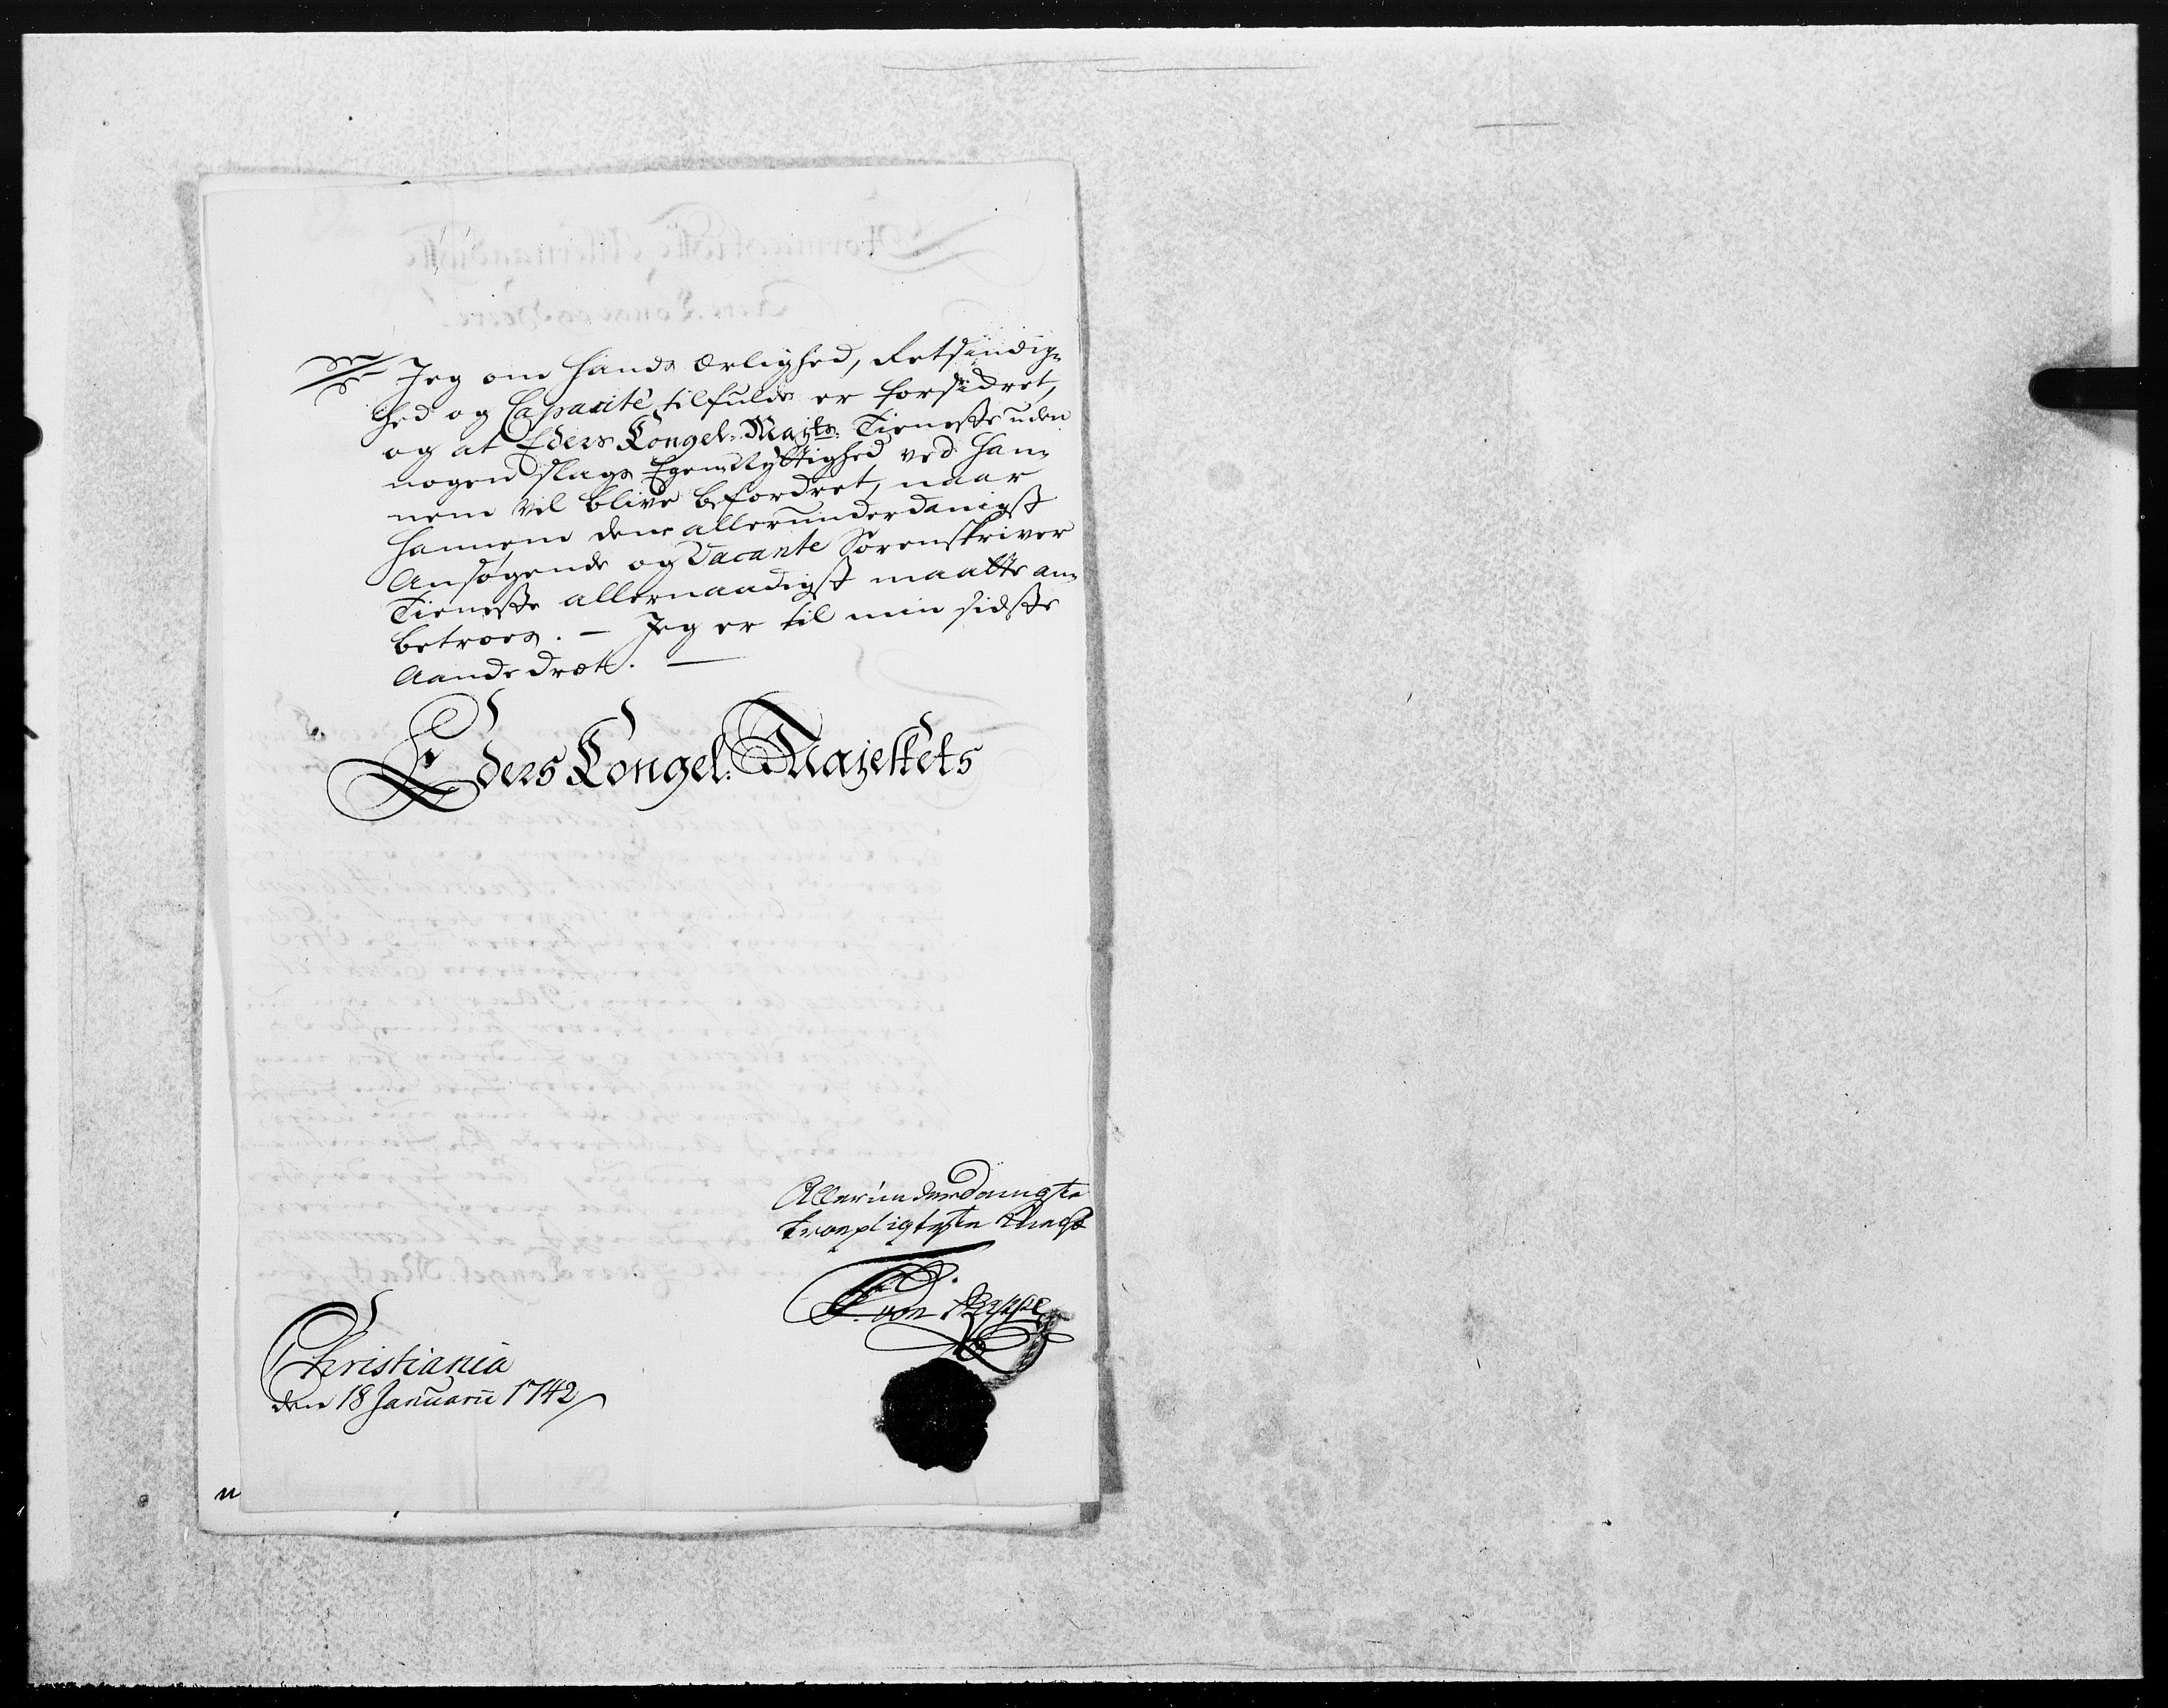 Jeg om hands Ærlighed, Retsindig-
hed og Capacité tilfulde er forsidret,
og at Eders Kongel: Majts: Tieneste uden
nogen slags Egennÿttighed ved han-
nem vil blive befordret, naar
hannem den allerunderdanigst
Ansøgende og Vacante Sorenskriver
Tieneste allernaadigst maatte an-
betroes. — Jeg er til min sidste
Aandedræt. —
Eders Kongel: Majestets
Allerunderdanigste
troepligtigste
Christiania
den 18 Januarii 1742